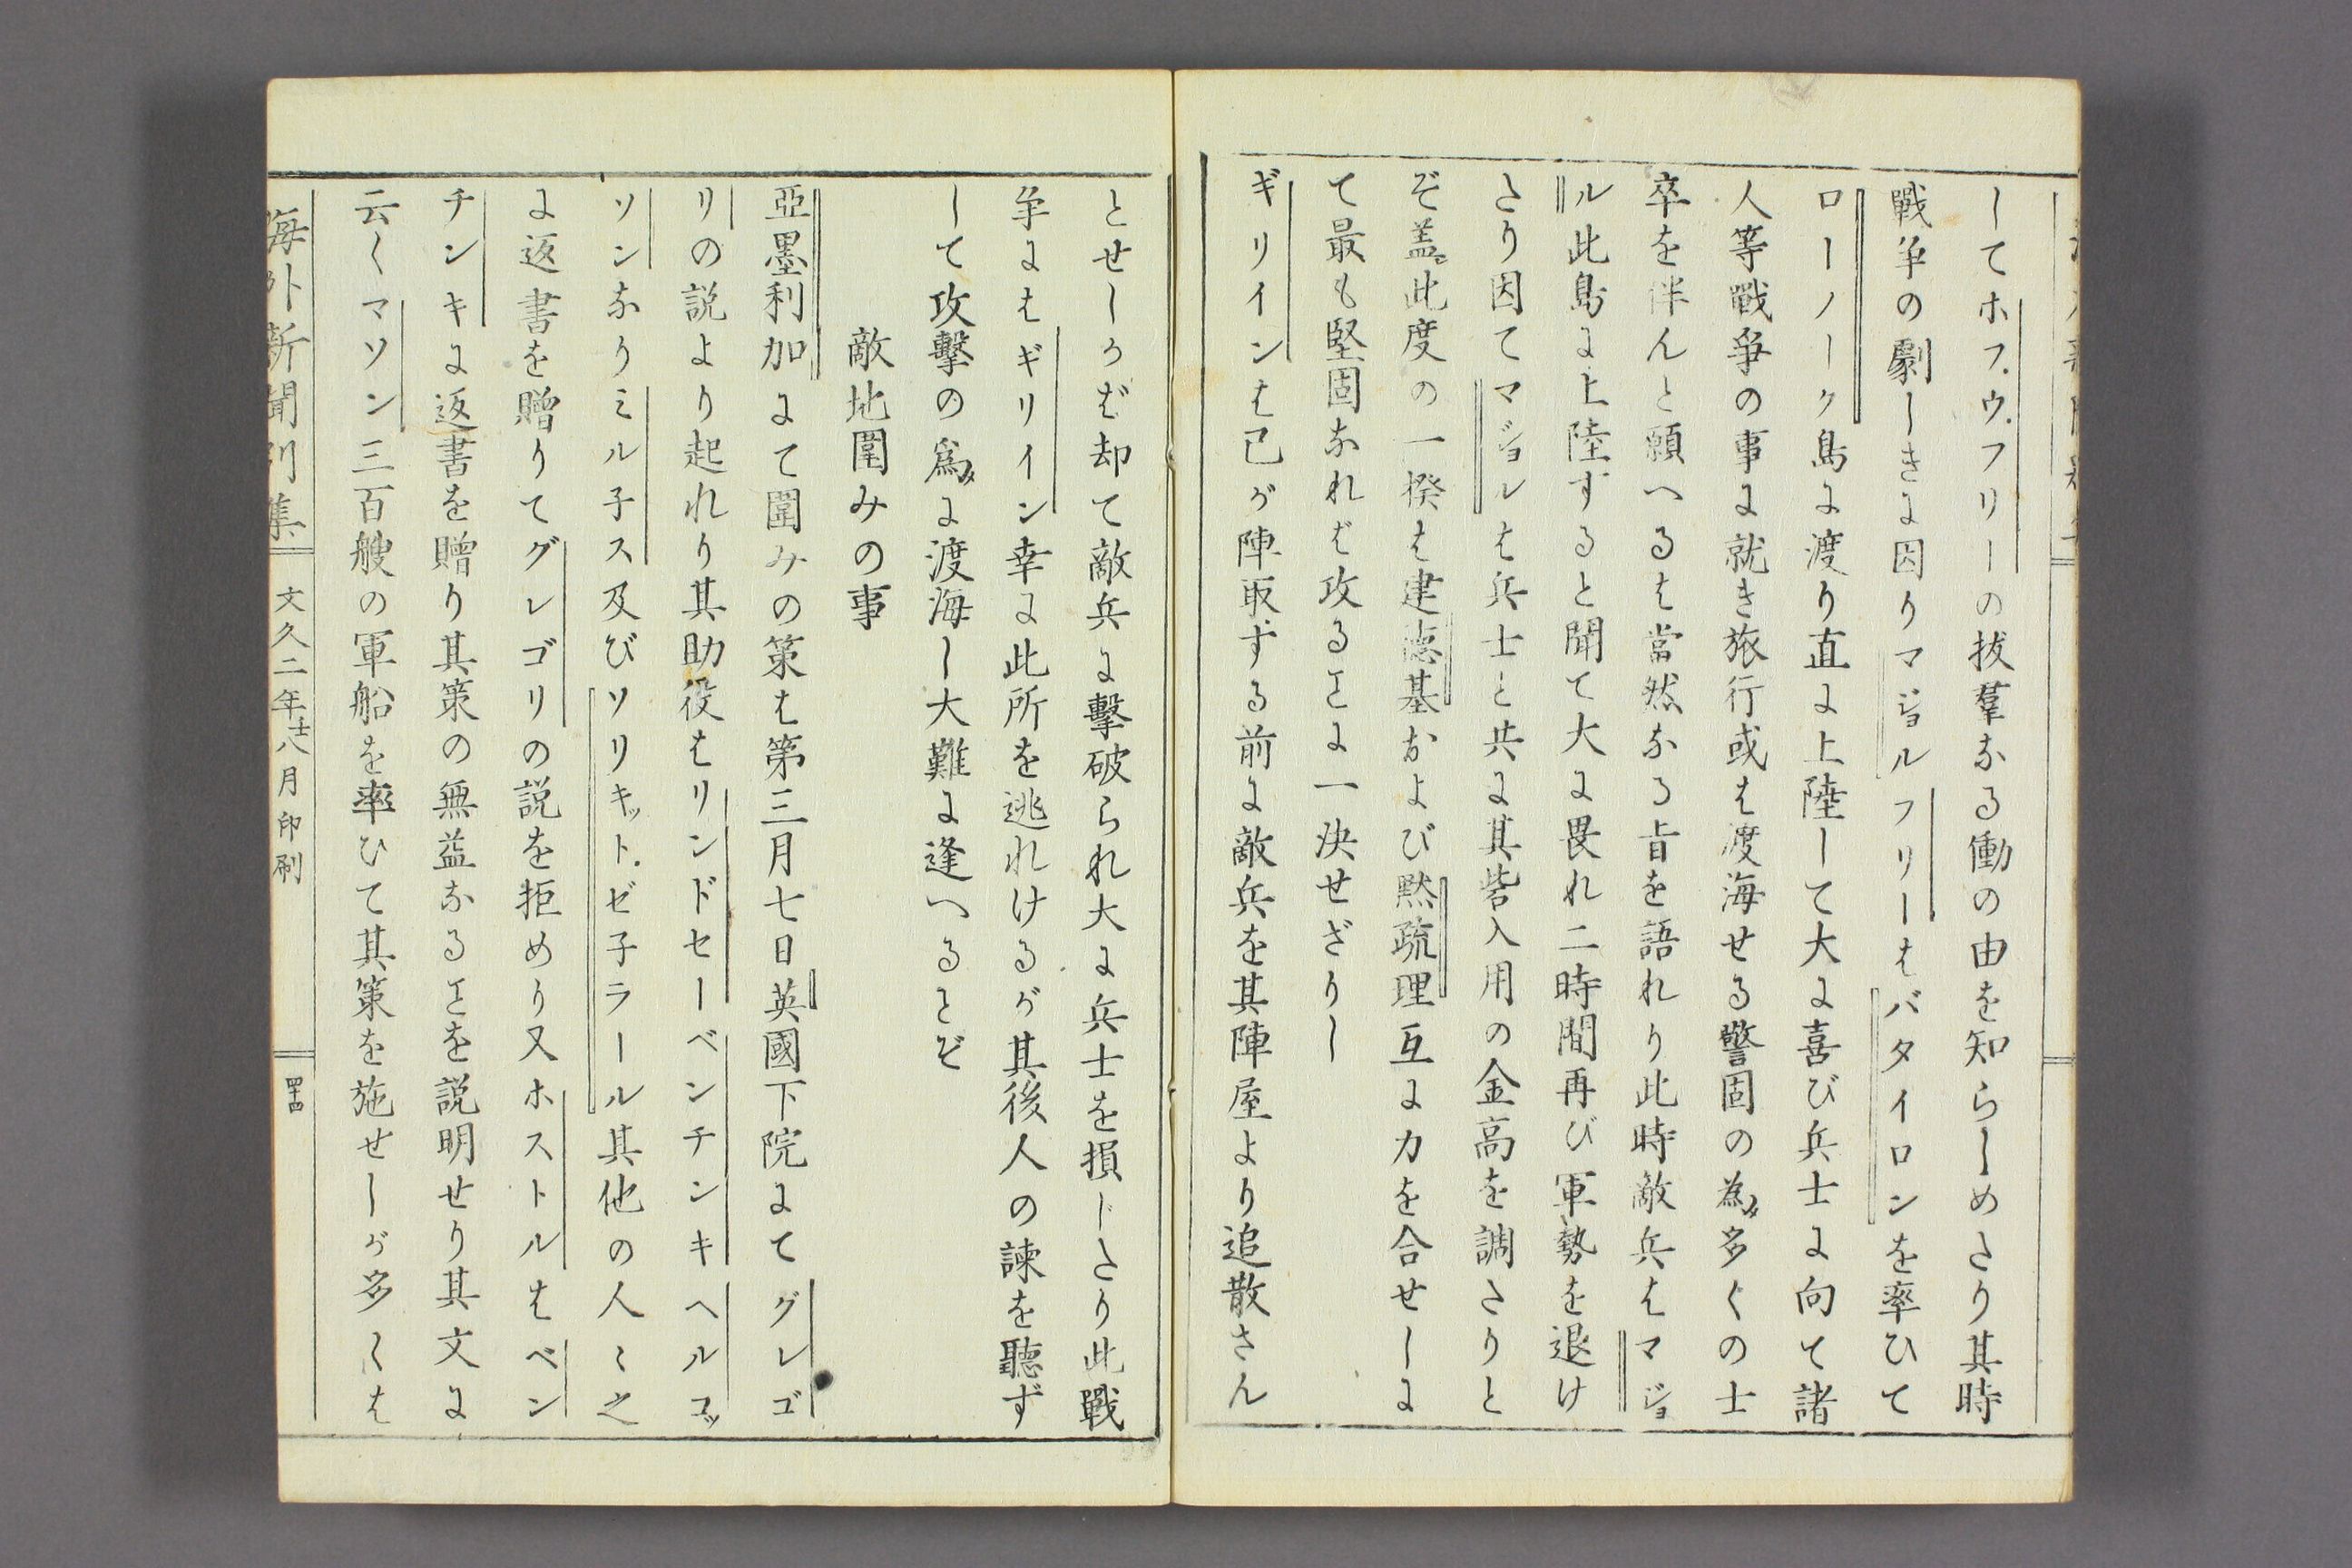 してホフ.ウ.フリーの拔羣なる働の由を知らしめたり其時
戰争の劇しきに因りマジョルフリーはバタイロンを率ひて
ローノーク島に渡り直に上陸して大に喜び兵士に向て諸
人等戰爭の事に就き旅行或は渡海せる警固の為メ多くの士
卒を伴んと願へるは當然なる旨を語れり此時敵兵はマジョ
ル此島に上陸すると聞て大に畏れ二時間再び軍勢を退け
たり因てマジョルは兵士と共に其砦入用の金高を調たりと
ぞ蓋シ此度の一揆は建德基および黙疏理互に力を合せしに
て最も堅固なれば攻るヿに一決せざりし
ギリインは已が陣取ずる前に敵兵を其陣屋より追散さん
とせしかば却て敵兵に擊破られ大に兵士を損じたり此戰
争にはギリイン幸に此所を逃れけるが其後人の諫を聽ず
して攻擊の爲メに渡海し大難に逢へるとぞ
敵地圍みの事
亞墨利加にて圍みの策は第三月七日英國下院にてグレゴ
リの説より起れり其助役はリンドセーベンチンキヘルコッ
ソンなりミル子ス及びソリキット.ゼ子ラール其他の人〻之
に返書を贈りてグレゴリの説を拒めり又ホストルはベン
チンキに返書を贈り其策の無益なるヿを説明せり其文に
云くマソン三百艘の軍船を率ひて其策を施せしが多くは
海外新聞別集
文久二年壬八月印刷
四十四